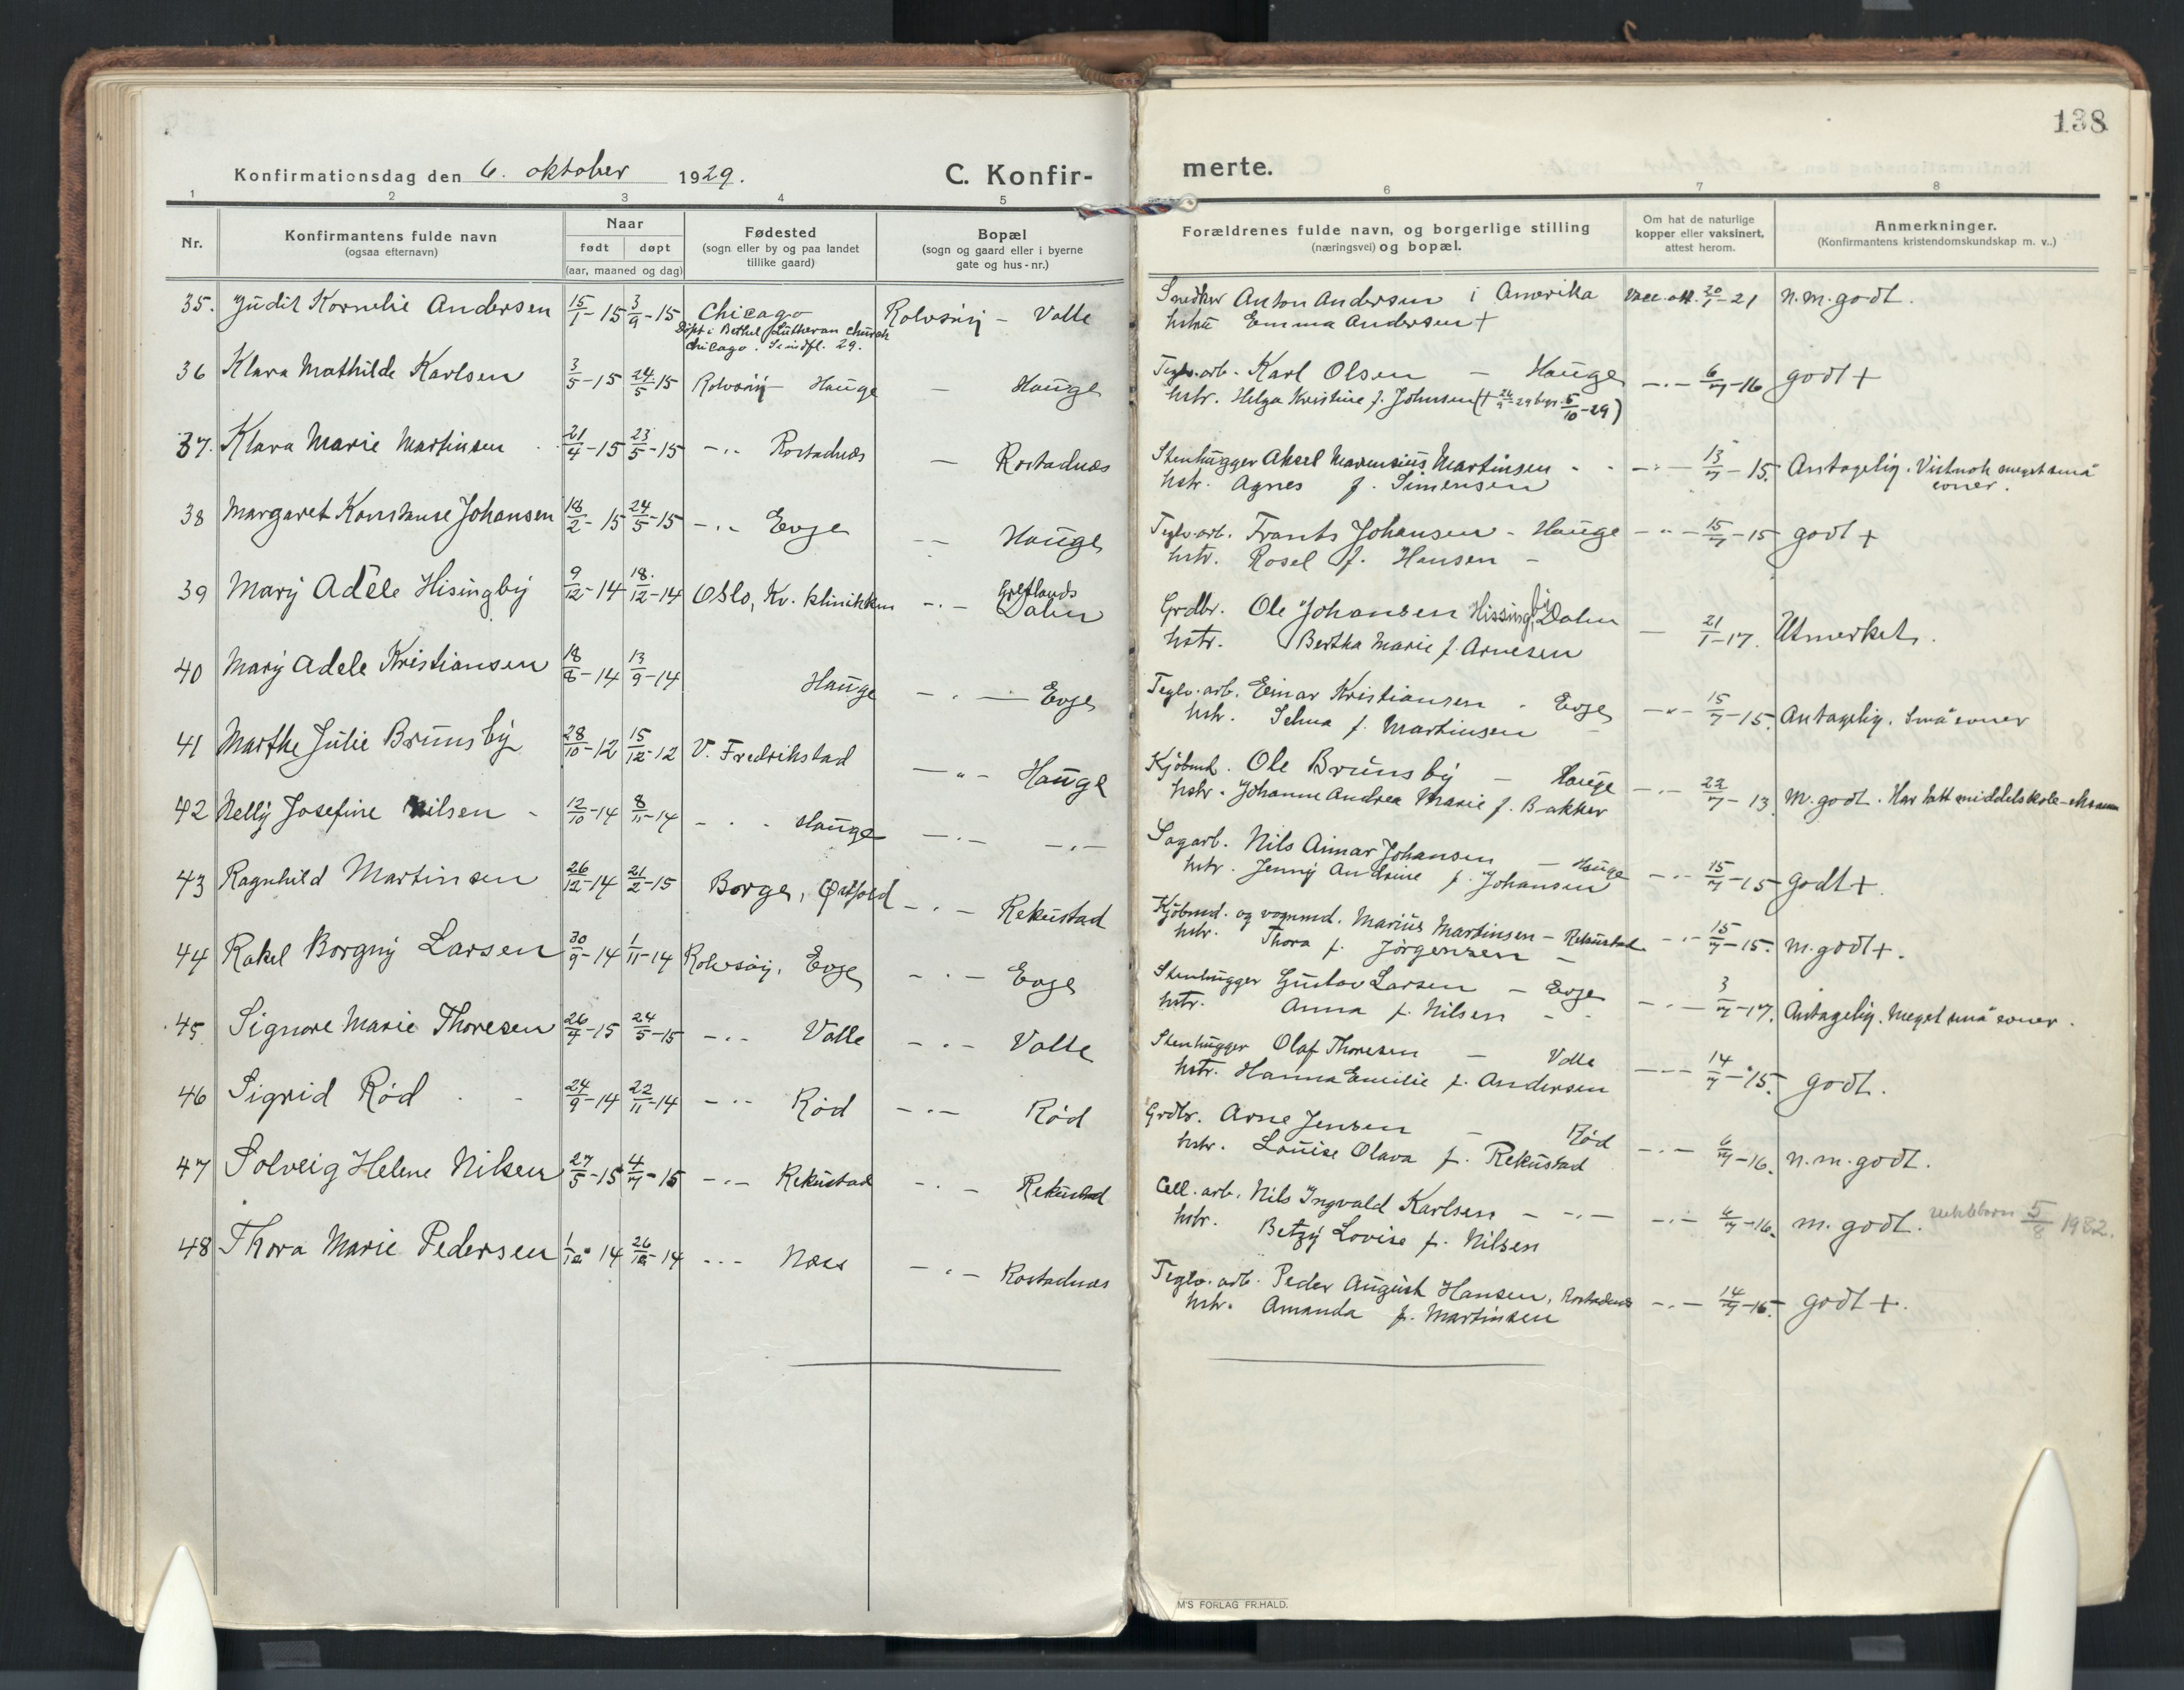 138
Konfirmationsdag den 6. oktober 1929.
C. Konfir-
merte.
1 2 3 4 5 6 7 8
Nr.
Konfirmantens fulde navn
(ogsaa efternavn)
Naar
født døpt
(aar, maaned og dag)
Fødested
(sogn eller by og paa landet
tillike gaard)
Bopæl
(sogn og gaard eller i byerne
gate og hus-nr.)
Forældrenes fulde navn, og borgerlige stilling
(næringsvei) og bopæl.
Om hat de naturlige
kopper eller vaksinert,
attest herom.
Anmerkninger.
(Konfirmantens kristendomskundskap m. v..)
35. Judit Kornelie Andersen 15/1-15 3/9-15 Chicago Rolvsøy - Valle Snedker Anton Andersen i Amerika Vacc. att. 20/1-21 n.m.godt.
Døpt i Bethel Lutheran Church
Chicago. 29.
hstru Emma Andersen +
36 Klara Mathilde Karlsen 3/5-15 24/5-15 Rolvsøy - Hauge — Hauge Teglv.arb. Karl Olsen - Hauge -.- 6/7-16 godt +
hstr. Helga Kristine f. Johnsen (+ 26/9-29 begr. 5/10-29)
37. Klara Marie Martinsen 21/4-15 23/5-15 -.- Rostadnes — Rostadnæs Stenhugger Aksel Marensius Martinsen -.- 13/7-15. Antagelig. Vistnok meget små
evner.
hstr. Agnes f. Simensen
38 Margaret Konstanse Johansen 18/2-15 24/5-15 -.- Evje -- Hauge Teglv.arb. Frants Johansen - Hauge -"- 15/7-15 godt +
hstr. Rosel f. Hansen -
39 Mary Adèle Hisingby 9/12-14 18./12-14 Oslo, Kv. klinikken -.- Gretlands
Dalen Grdbr. Ole Johansen Hissingby, Dalen — 21/1-17. Utmerket.
hstr. Bertha Marie f. Arnesen
40 Mary Adele Kristiansen 18/8-14 13/9-14 Hauge -.- Evje Teglv.arb. Einar Kristiansen - Evje -"- 15/7-15. Antagelig. Små evner
hstr. Selma f. Martinsen -
41 Marthe Julie Brunsby 28/10-12 15/12-12 V. Fredrikstad -"- Hauge Kjøbmd. Ole Brunsby - Hauge -.- 22/7-13. M. godt. Har tatt middelskole-eksamen
hstr. Johanne Andrea Marie f. Bakker
42 Nelly Josefine Nilsen - 12/10-14 8/11-14 - . - Hauge -.- -.- Sagarb. Nils Ainar Johansen - Hauge -.- 15/7-15 godt +.
hstr. Jenny Andrine f. Johansen
43 Ragnhild Martinsen 26/12-14 21/2-15 Borge, Østfold -.- Rekustad Kjøbmd. og vognmd. Marius Martinsen - Rekustad -.- 15/7-15. m. godt +.
hstr. Thora f. Jørgensen -
44 Rakel Borgny Larsen 30/9-14 1/11-14 Rolvsøy, Evje -.- Evje Stenhugger Gustav Larsen - Evje -.- 3/7-17. Antagelig. Meget små evner.
hstr. Anna f. Nilsen - -
45. Signore Marie Thoresen 26/4-15 24/5-15 -.- Valle -.- Valle Stenhugger Olaf Thoresen - Valle --- 14/7-15. godt.
hstr. Hanna Emilie f. Andersen
46 Sigrid Rød 24/9-14 22/11-14 -.- Rød -.- Rød Grdbr. Arne Jensen - Rød -.- 6/7-16. n.m. godt.
hstr. Louise Olava f. Rekustad
47 Solveig Helene Nilsen 27/5-15 4/7-15 -.- Rekustad -.- Rekustad Cell. arb. Nils Ingvald Karlsen - -.- -.- 6/7-16. m. godt. 5/8 1932.
hstr. Betzy Lovise f. Nilsen
48 Thora Marie Pedersen 1/10-14 26/12-14 -.- Næss -.- Rostadnæs Teglv. arb. Peder August Hansen, Rostadnæs -.- 14/9-16. godt +.
hstr. Amanda f. Martinsen
M'S FORLAG FR.HALD.